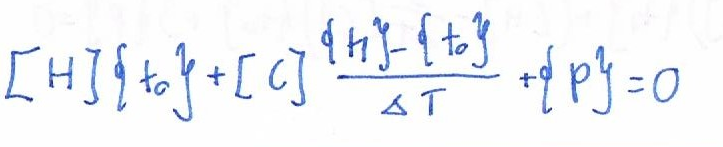 [H]{t₀}+[C] ({t₁}-{t₀})/(ΔT) +{P}=0